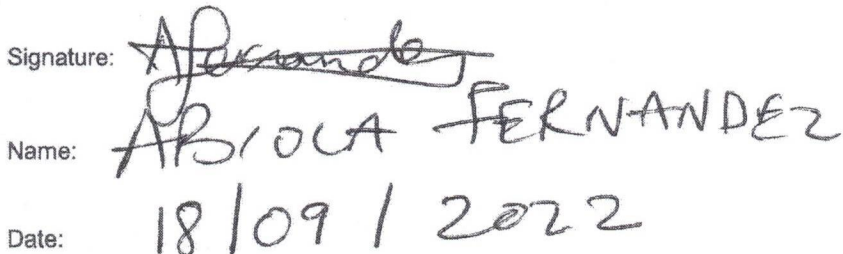 Signature: AFernandez
Name: ABIOLA FERNANDEZ
Date: 18/09/2022